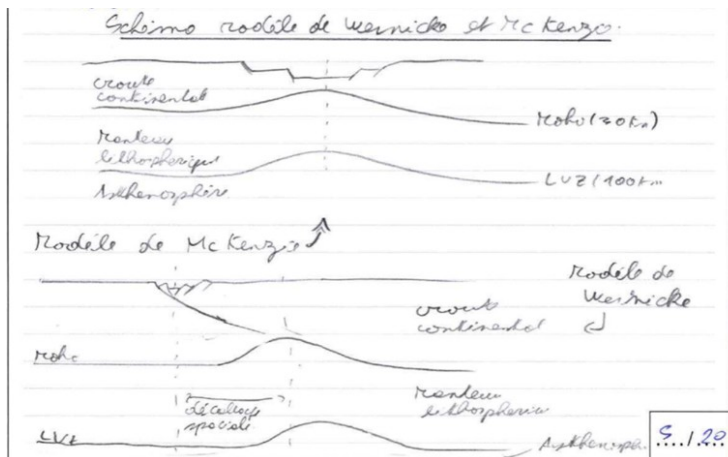 Schéma modèle de Wernicke et Mc Kenzie.
croute
continental
Moho (30 km)
Manteau
lithospherique
LVZ (100 km
Asthenosphère
Modèle de Mc Kenzie
Modèle de
Wernicke
crout
continental
Moho
décallage
spaciale
Manteau
lithospheriq
LVZ
Asthenosph.
5..../20